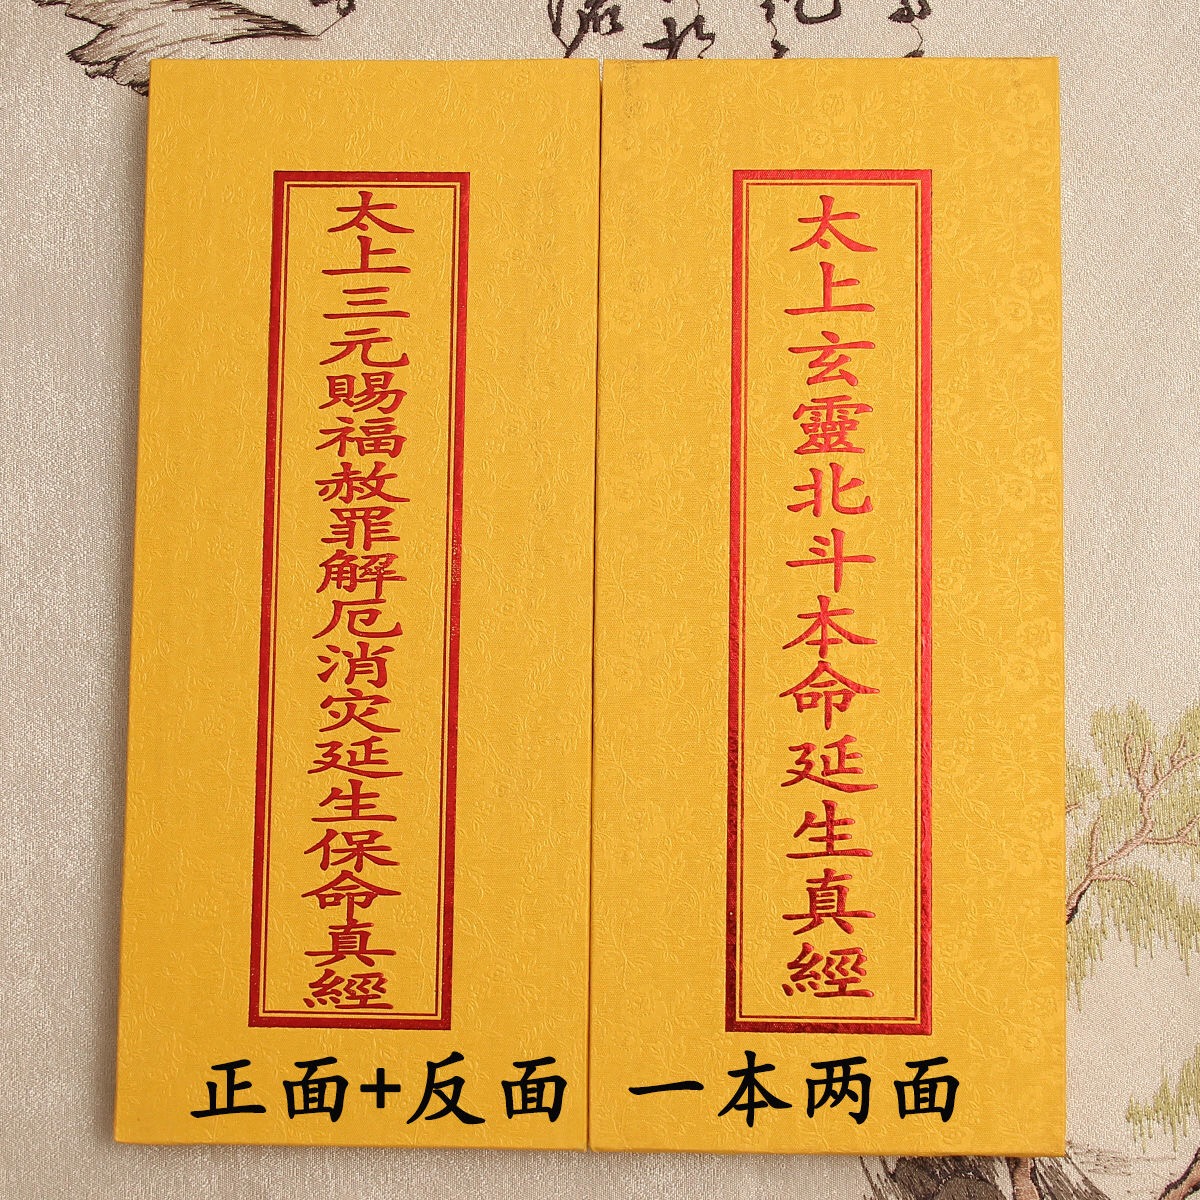 太上三元賜福赦罪解厄消灾延生保命真經
太上玄靈北斗本命延生真經
正面+反面 一本两面